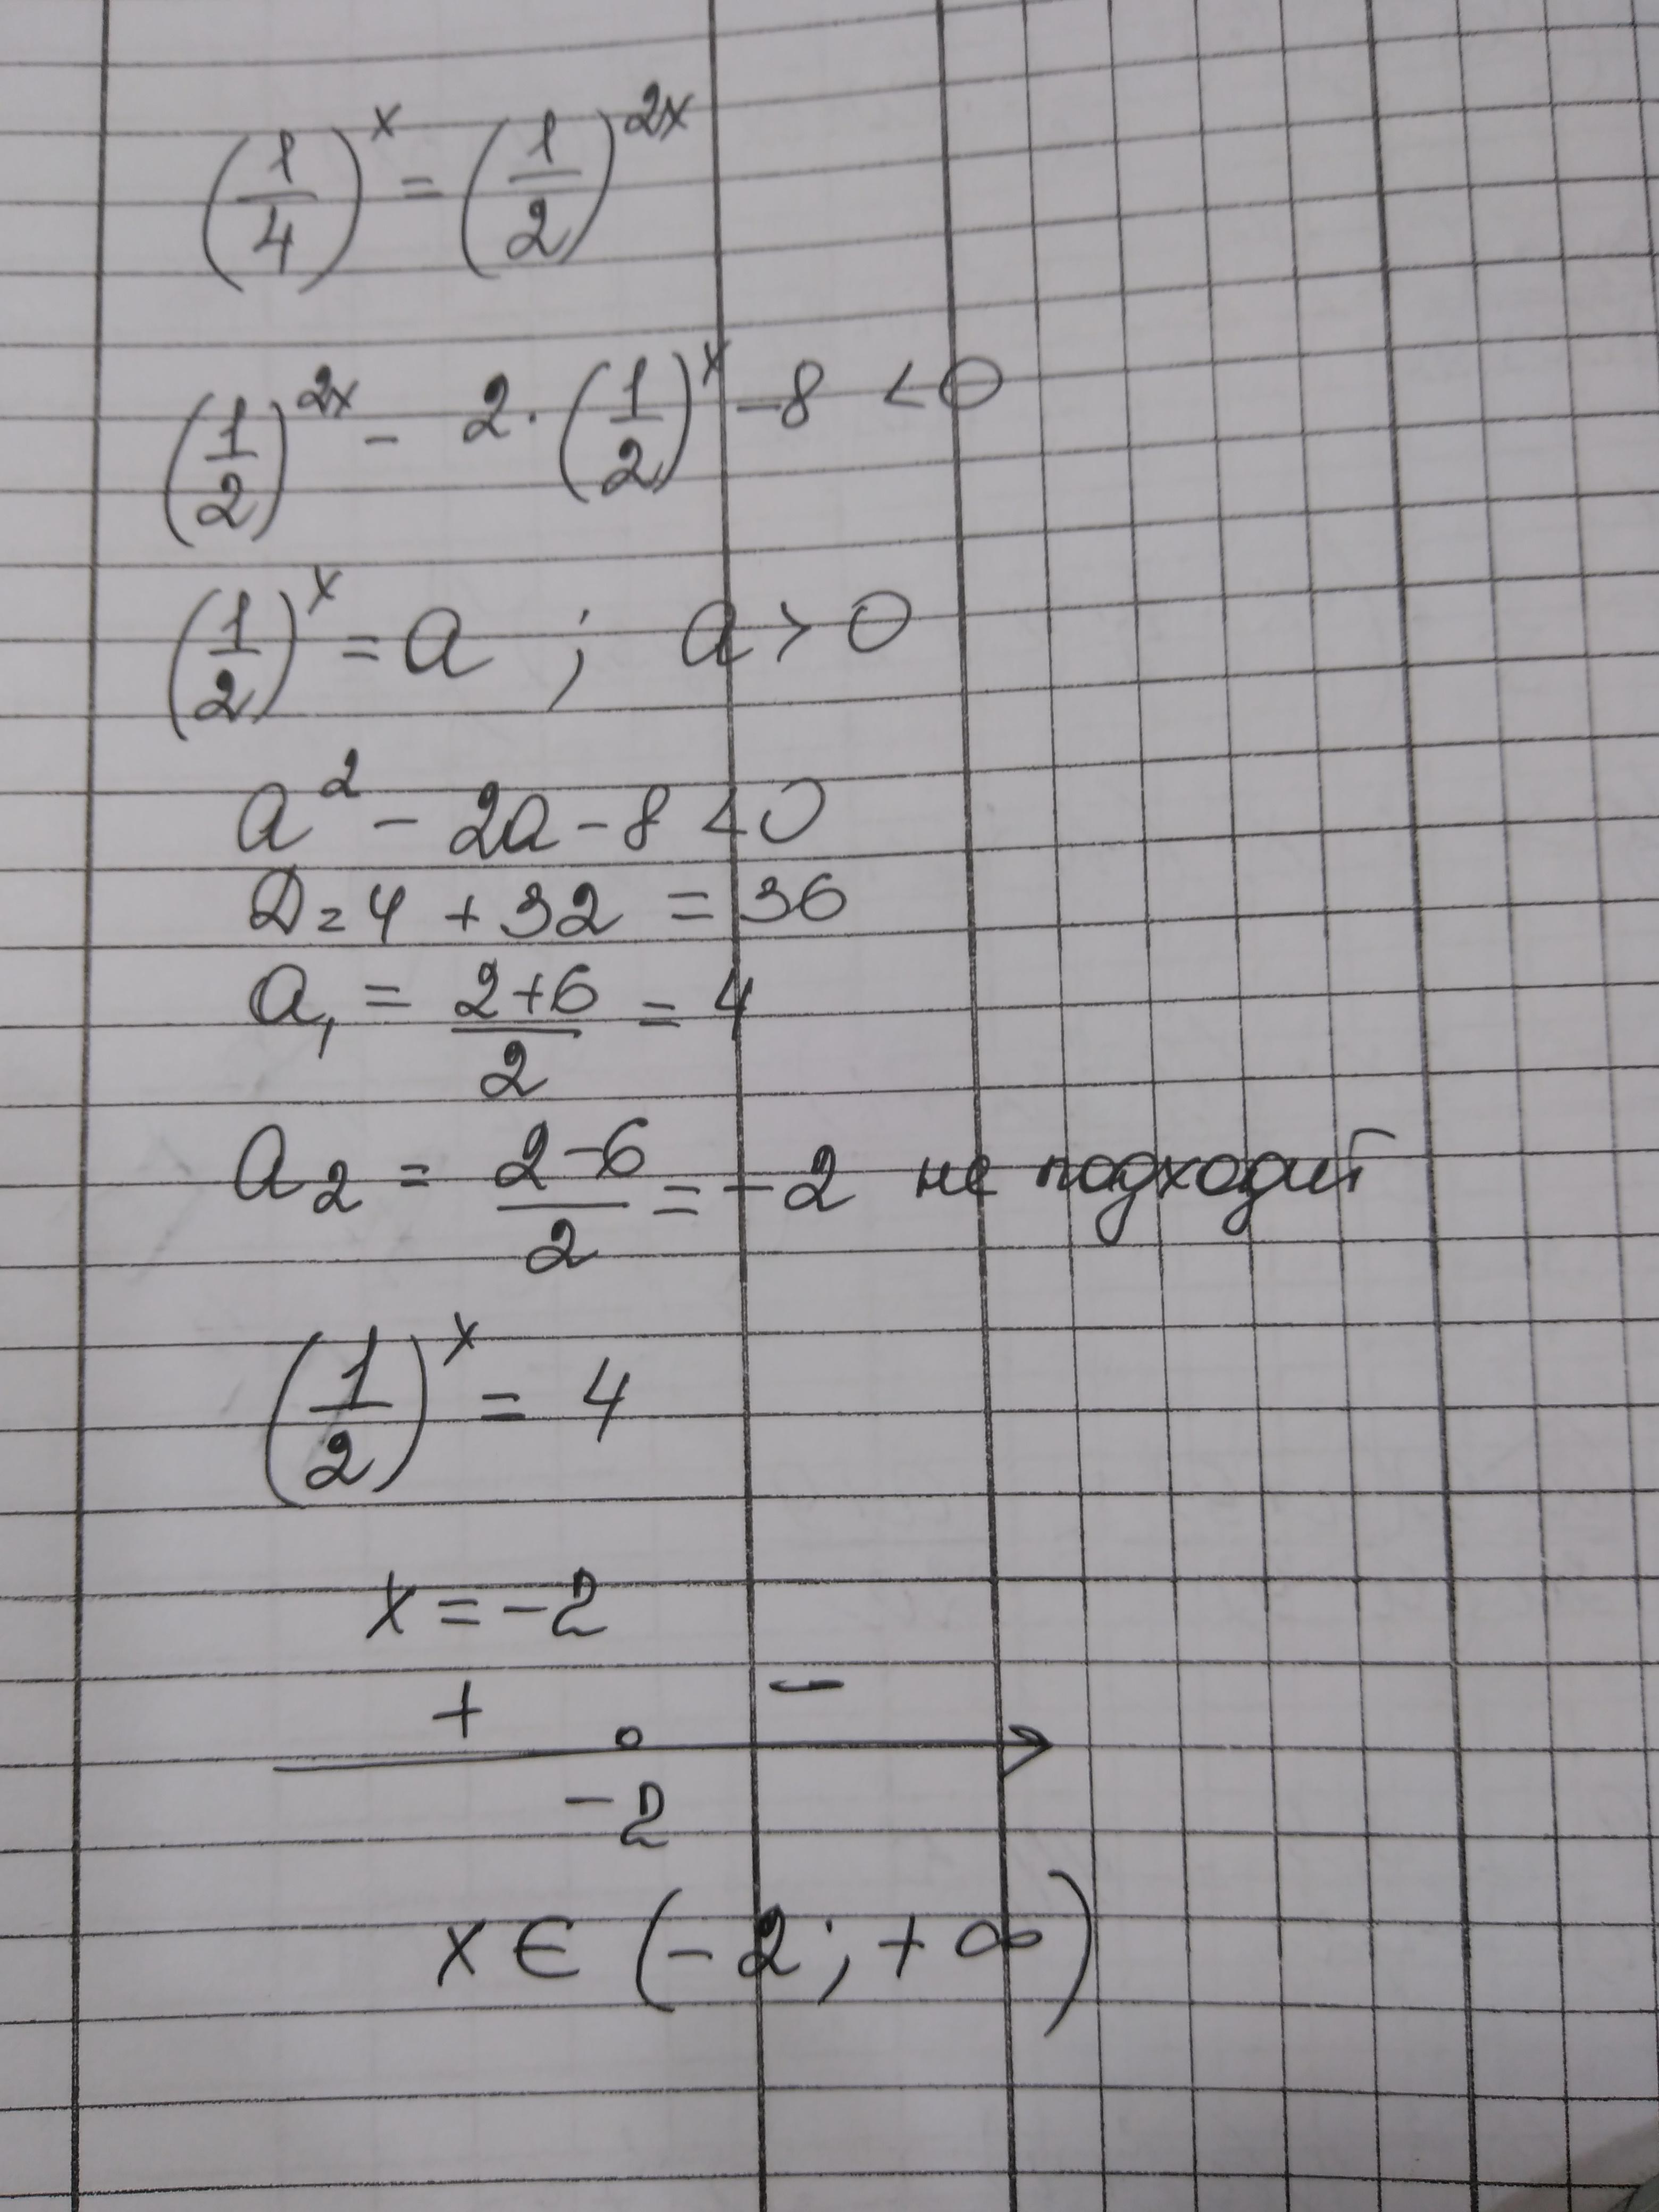 (1/4)^x = (1/2)^2x
(1/2)^2x - 2·(1/2)^x - 8 < 0
(1/2)^x = a ; a > 0
a² - 2a - 8 < 0
D = 4 + 32 = 36
a₁ = (2+6)/2 = 4
a₂ = (2-6)/2 = -2 не подходит
(1/2)^x = 4
x = -2
+ -
-2
x ∈ (-2; +∞)